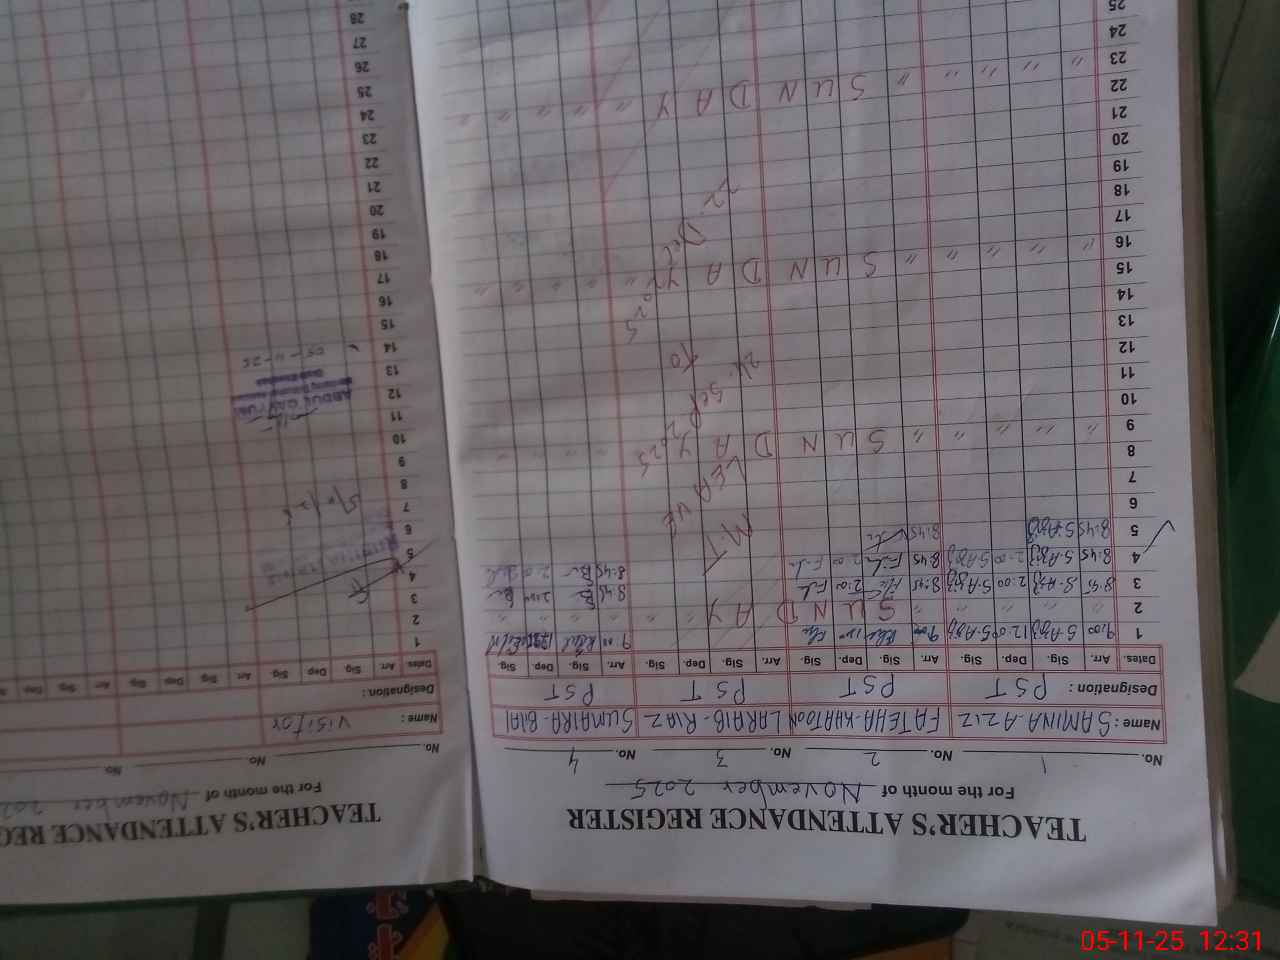 TEACHER'S ATTENDANCE REGISTER
For the month of November 2025
No. 1 No. 2 No. 3 No. 4
Name: SAMINA-AZIZ FATEHA-KHATOON LARAIB-RIAZ SUMAIRA-BIBI
Designation: PST PST PST PST
Dates. Arr. Sig. Dep. Sig. Arr. Sig. Dep. Sig. Arr. Sig. Dep. Sig. Arr. Sig. Dep. Sig.
1 9:00 S.Aziz 12:00 S.Aziz 9:00
2 " " " " SUNDAY " " " "
3 8:45 S.Aziz 2:00 S.Aziz 8:45 2:00 8:45 2:00
4 8:45 S.Aziz 2:00 S.Aziz 8:45 2:00 8:45 2:00
5 8:45 S.Aziz 8:45
6
7
8
9 " " " " " SUNDAY " " " "
10
11
12
13
14
15
16 " " " " " SUNDAY " " " "
17
18
19
20
21
22
23 " " " " " SUNDAY " " " "
24
25
M.T LEAVE
24 Sep 2025
to
2 Dec 25
TEACHER'S ATTENDANCE REG
For the month of November 202
No. No
Name: Visitor
Designation:
Dates. Arr. Sig. Dep. Sig. Arr. Sig. Dep. Sig. Arr Sig. Sig
1
2
3
4
5
6
7
8
9
10
11
12
13
14
15
16
17
18
19
20
21
22
23
24
25
26
27
28
ABDUL QAYYUM
05-11-25
05-11-25 12:31